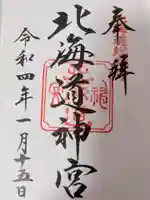 奉拝
北海道神宮
令和四年一月十五日